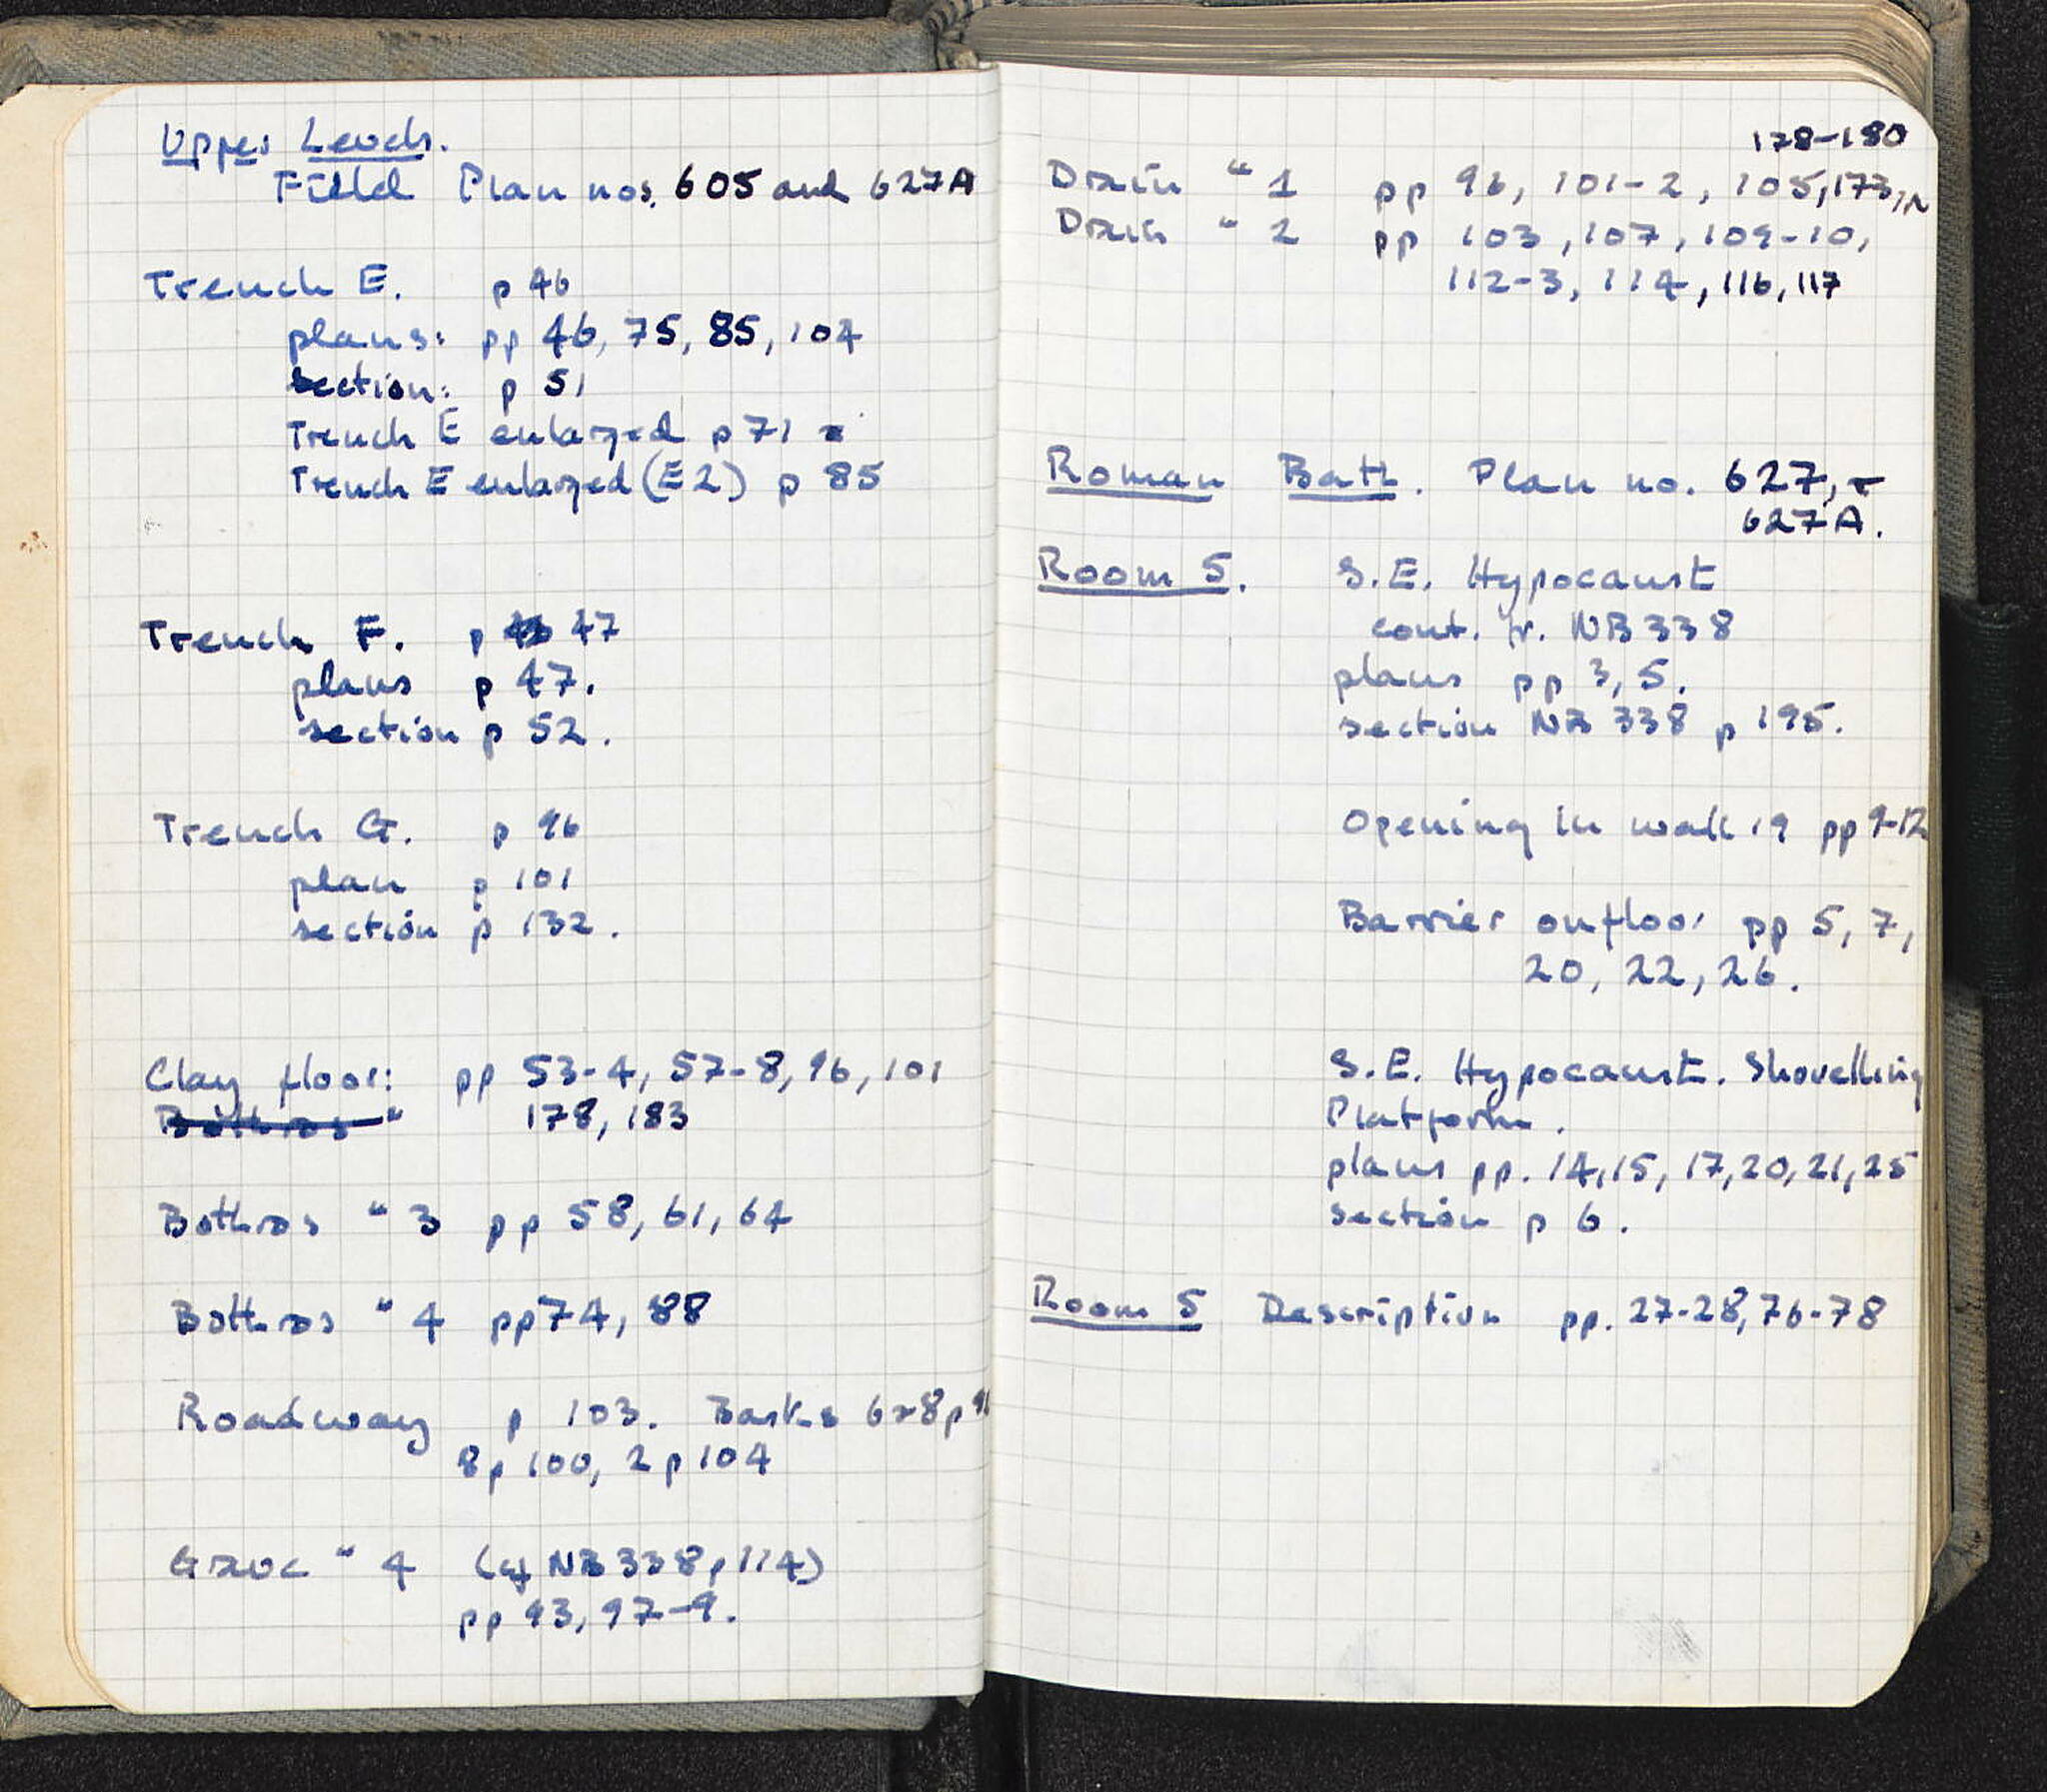 Upper Levels.
Field Plan nos. 605 and 627A
Trench E. p 46
plans: pp 46, 75, 85, 104
section: p 51
Trench E enlarged p 71
Trench E enlarged (E2) p 85
Trench F. p 47
plans p 47.
section p 52.
Trench G. p 96
plan p 101
section p 132.
Clay floor: pp 53-4, 57-8, 96, 101
Bothros " 178, 183
Bothros " 3 pp 58, 61, 64
Bothros " 4 pp 74, 88
Roadway p 103. Baskets 6+8 p 96
8 p 100, 2 p 104
Grave " 4 (cf NB 338 p 114)
pp 93, 97-9.
178-180
Drain " 1 pp 96, 101-2, 105, 173,
Drain " 2 pp 103, 107, 109-10,
112-3, 114, 116, 117
Roman Bath. Plan no. 627, +
627A.
Room 5. S.E. Hypocaust
cont. fr. NB 338
plans pp 3, 5.
section NB 338 p 195.
Opening in wall 19 pp 9-12
Barrier on floor pp 5, 7,
20, 22, 26.
S.E. Hypocaust. Shovelling
Platform.
plans pp. 14, 15, 17, 20, 21, 25
section p 6.
Room 5 Description pp. 27-28, 76-78